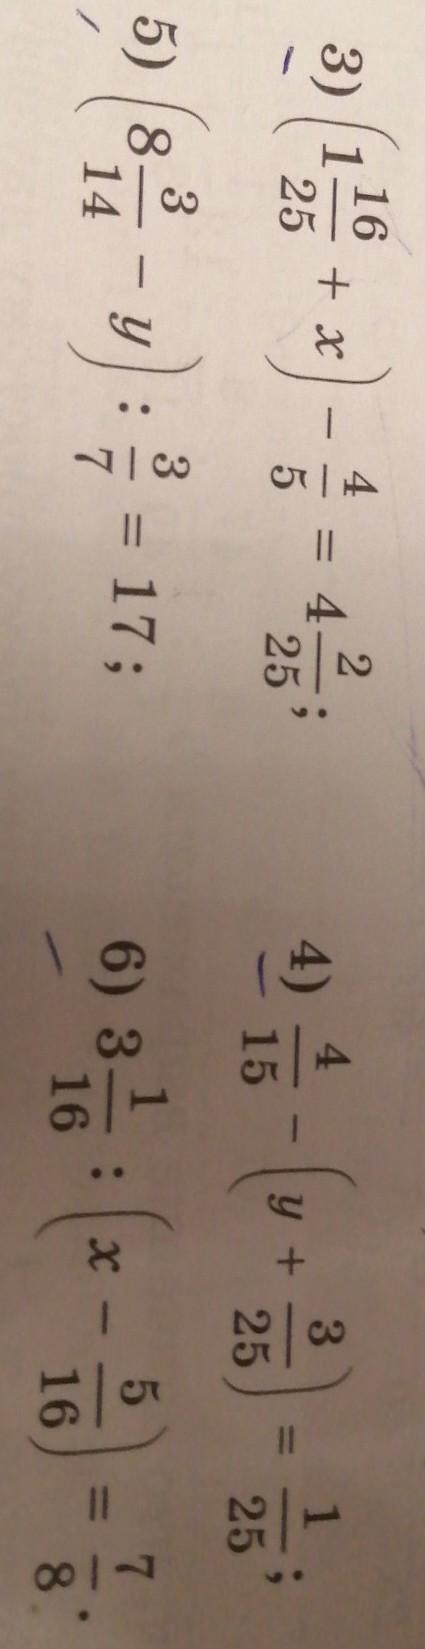 3) (1 16/25 + x) − 4/5 = 4 2/25; 4) 4/15 − (y + 3/25) = 1/25;
5) (8 3/14 − y) : 3/7 = 17; 6) 3 1/16 : (x − 5/16) = 7/8.